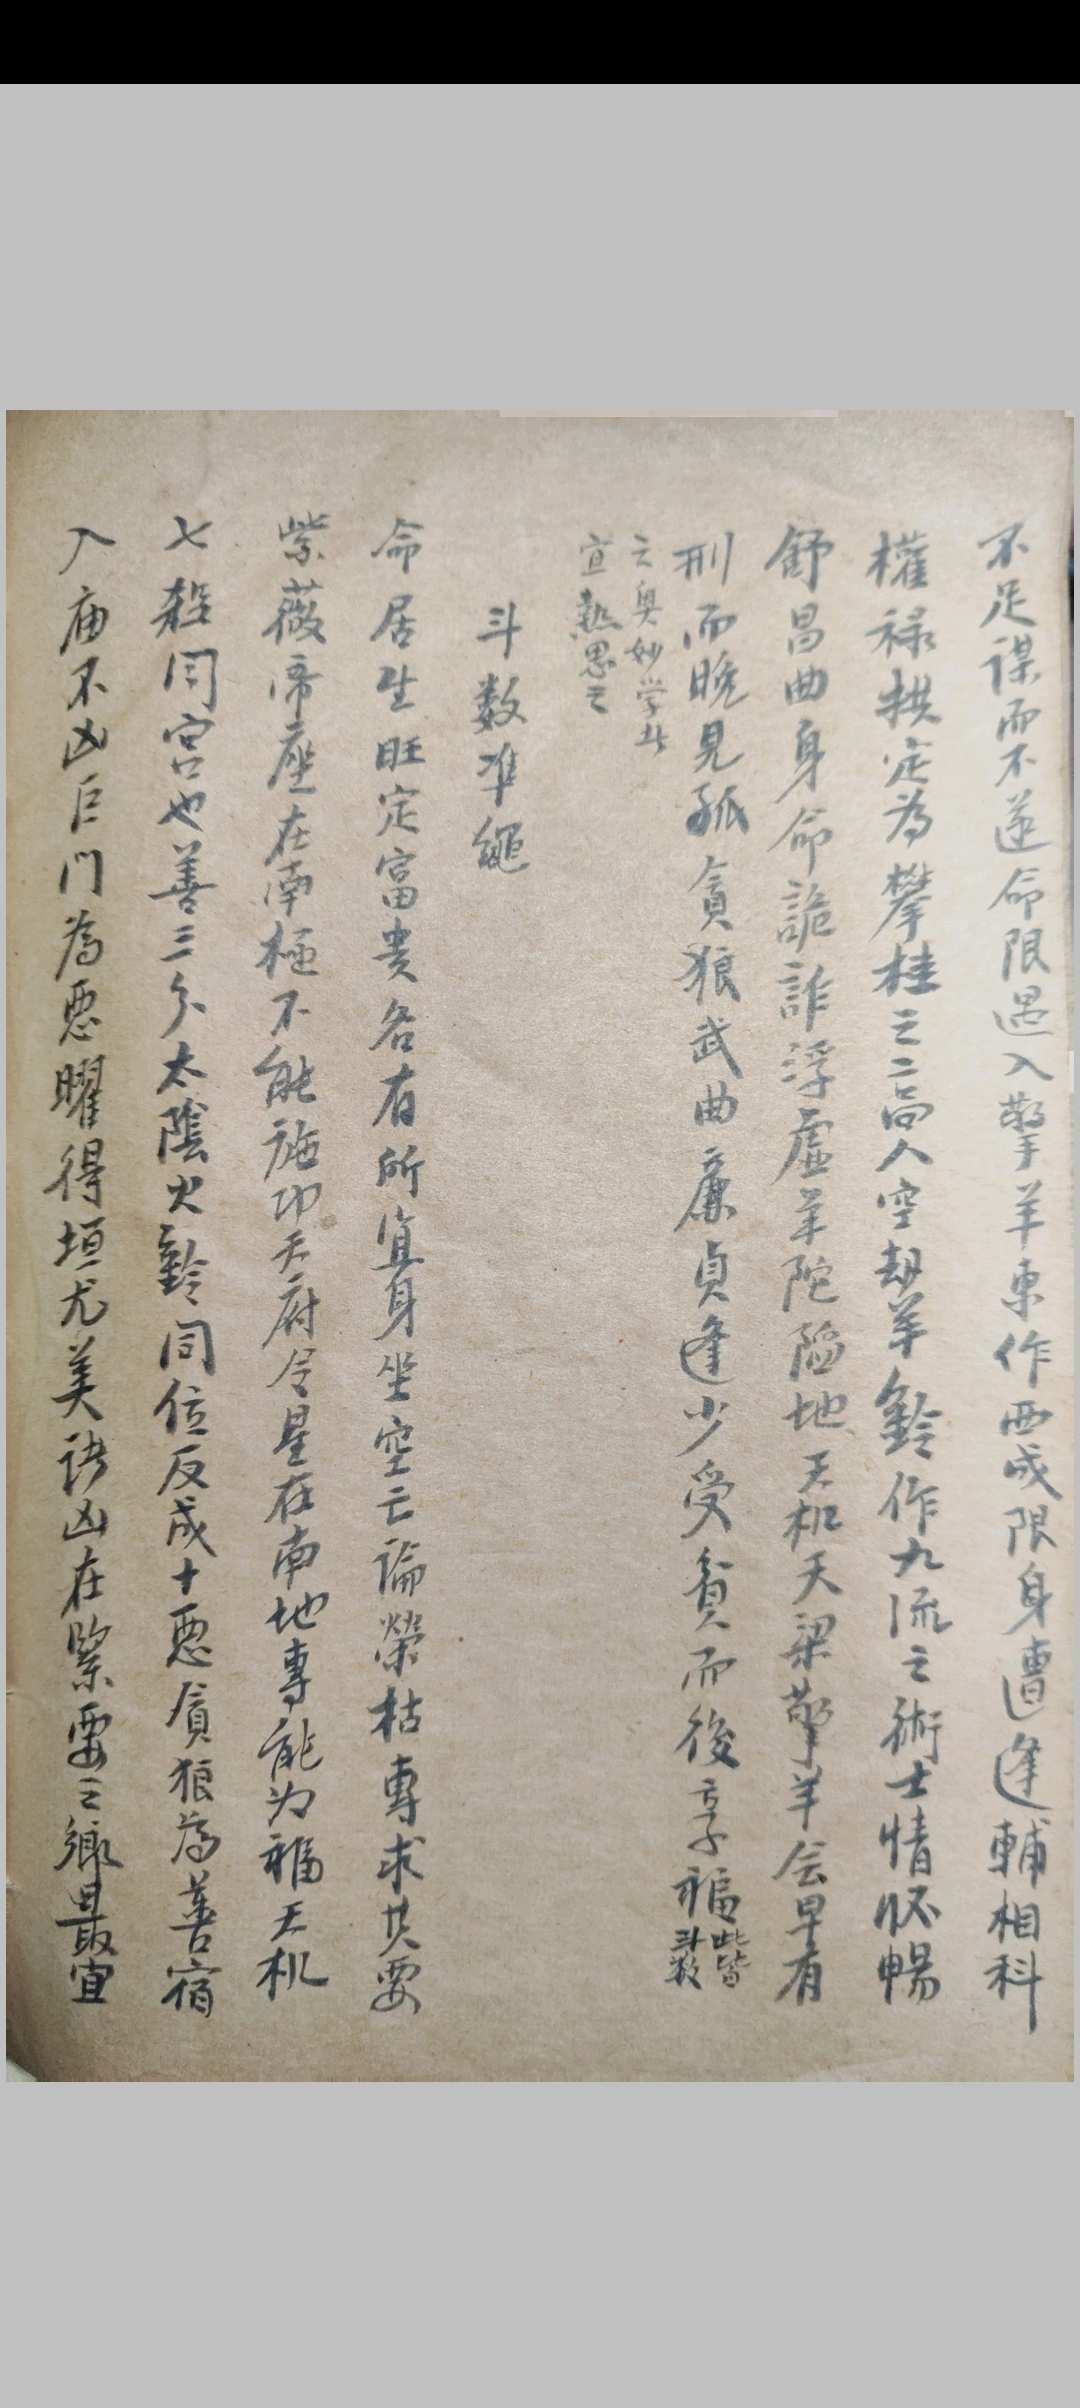 不足謀而不遂命限遇入擎羊東作西成限身遭逢輔相科
權禄拱定為攀桂之高人空劫羊鈴作九流之術士情怀暢
舒昌曲身命詭詐浮虛羊陀陷地天机天梁擎羊会早有
刑而晚見孤貪狼武曲廉貞逢少受貧而後享福此皆斗数
之奥妙学者
宜熟思之
斗数准繩
命居生旺定富贵各有所宜身坐空亡論榮枯專求其要
紫薇帝座在南極不能施功天府令星在南地專能为福天机
七殺同宮也善三分太陰火鈴同位反成十惡貪狼為善宿
入庙不凶巨門為惡曜得垣尤美诸凶在緊要之鄉最宜